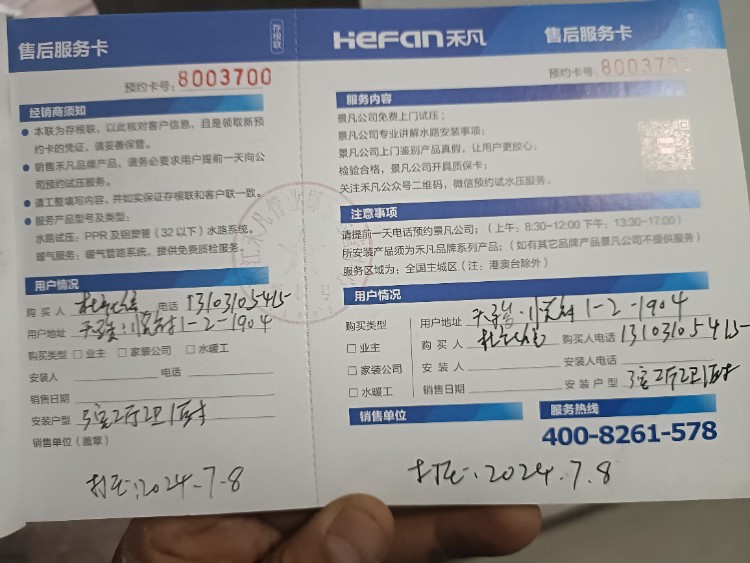 售后服务卡
存根联
预约卡号:8003700
经销商须知
● 本联为存根联,以此核对客户信息,且是领取新预
约卡的凭证,请妥善保管。
● 销售禾凡品牌产品,请务必要求用户提前一天向公
司预约试压服务。
● 请工整填写内容,并如实保证存根联和客户联一致。
● 服务产品型号及类型:
水路试压:PPR及铝塑管(32以下)水路系统。
暖气服务:暖气管路系统,提供免费质检服务。
用户情况
购买人 电话 13103105415
用户地址 1-2-1904
购买类型 □ 业主 □ 家装公司 □ 水暖工
安装人 电话
销售日期
安装户型 3室2厅2卫1厨
销售单位(盖章)
打压:2024.7.8
HeFan禾凡 售后服务卡
预约卡号:8003700
服务内容
景凡公司免费上门试压;
景凡公司专业讲解水路安装事项;
景凡公司上门鉴别产品真假,让用户更放心;
检验合格,景凡公司开具质保卡;
关注禾凡公众号二维码,微信预约试水压服务。
注意事项
请提前一天电话预约景凡公司;(上午:8:30-12:00 下午:13:30-17:00)
所安装产品须为禾凡品牌系列产品;(如有其它品牌产品景凡公司不提供服务)
服务区域为:全国主城区(注:港澳台除外)
用户情况
购买类型
□ 业主
□ 家装公司
□ 水暖工
用户地址 1-2-1904
购买人 购买人电话 13103105415
安装人 安装人电话
销售日期 安装户型 3室2厅2卫1厨
销售单位
服务热线
400-8261-578
打压:2024.7.8